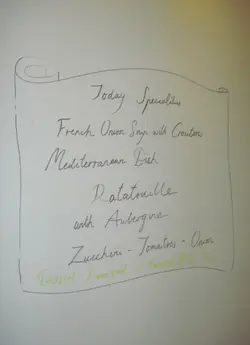 Today Specialities
French Onion Soup with Croutons
Mediterranean Dish
Ratatouille
with Aubergine
Zucchini - Tomatoes - Onion